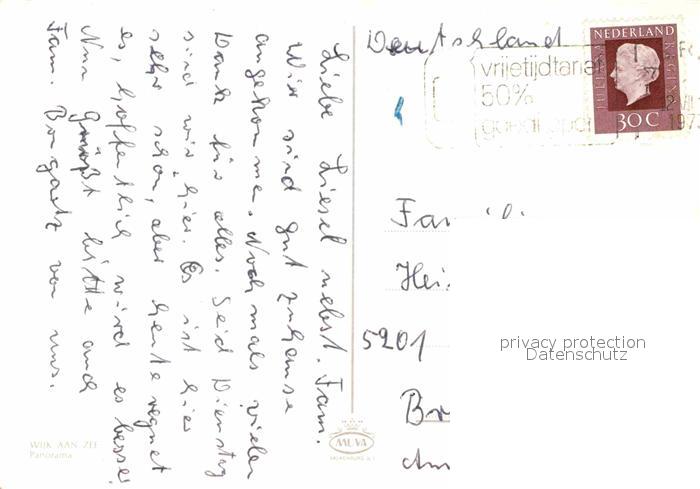 Liebe Liesel nebst. Fam.
Wir sind gut zuhause
angekommen. Nochmals vielen
Dank für alles. Seid Dienstag
sind wir hier. Es ist hier
sehr schön, aber heute regnet
es, hoffentlich wird es besser
Nun grüßt bitte auch
Fam. Bongartz von uns.
WIJK AAN ZEE
Panorama
MUVA
VALKENBURG
Deutschland
vrijetijdtarief
50%
goedkoper
NEDERLAND
JULIANA REGINA
30 C
Fam
Hei
5201
privacy protection
Datenschutz
Br
Am